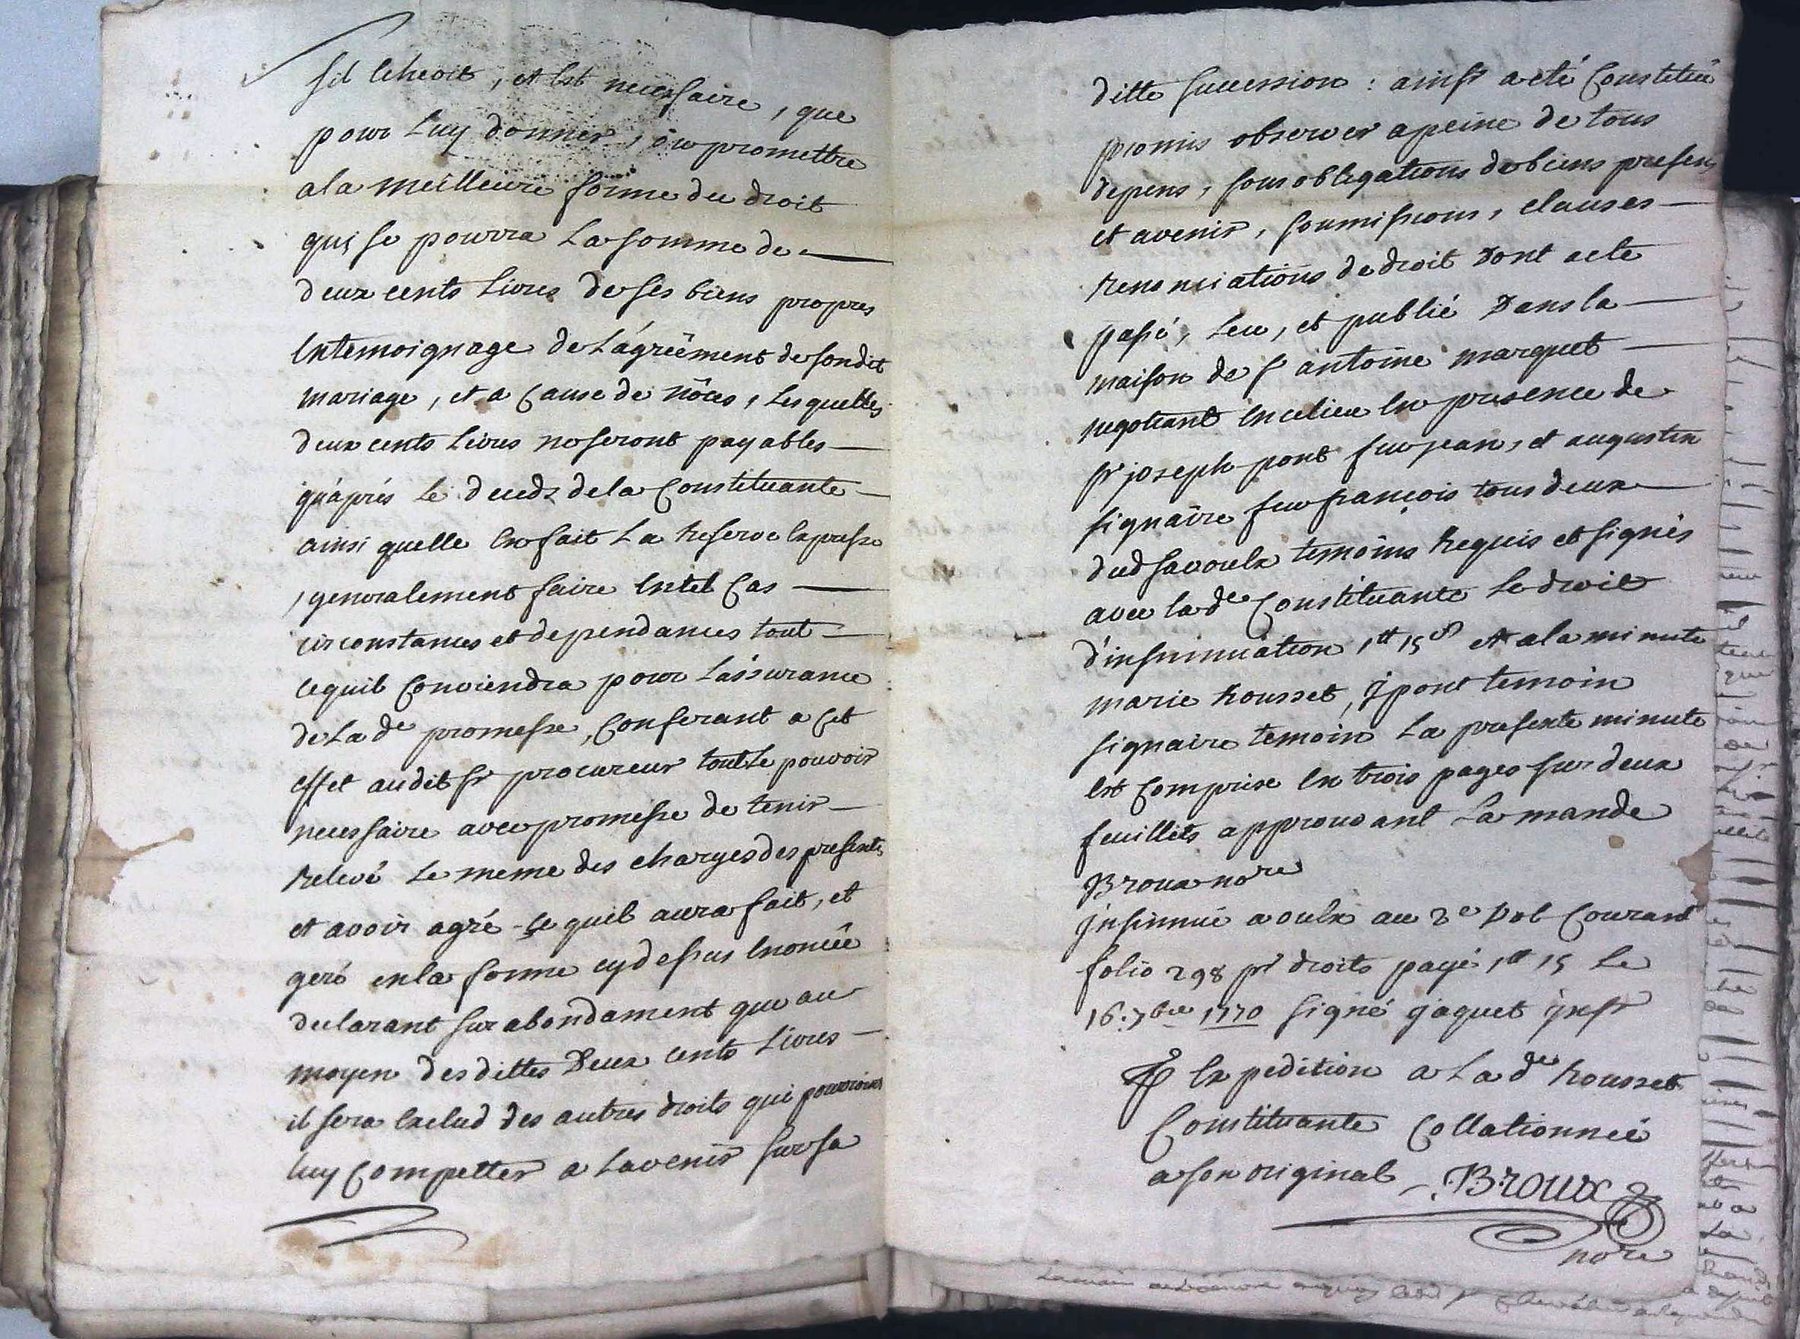 sil lcheoit, et Est necessaire, que
pour Luy donner, ou promettre
a la meilleure forme du droit
qui se pourra La somme de
deux cents Livres de ses biens propres
En temoignage de L'agréement de sondit
mariage, et a Cause de nôces, Lesquelles
deux cents Livres ne seront payables
qu'aprés Le deceds de la Constituante
ainsi quelle En fait La Reserve Expresse
, generalement faire En tel Cas
circonstances et dependances tout
ce quil Conviendra pour L'assurance
de La de promesse, Conferant a Cet
effet audit sr procureur tout Le pouvoir
necessaire avec promesse de tenir
Relevé Le meme des charges des presentes
et avoir agré Ce quil aura fait, et
geré en la forme cy dessus Enoncée
declarant surabondament que au
moyen desdittes Deux cents Livres
il sera Exclud des autres droits qui pourroint
luy Competter a L'avenir sur sa
ditte succession : ainsy a eté Constitué
promis observer a peine de tous
depens, sous obligations de biens presens
et avenir, soumissions, clauses
renonciations de droit Dont acte
passé, Leu, et publié Dans la
maison de sr antoine marquet
negotiant En ce lieu En presence de
sr joseph pont feu jean, et augustin
signaire feu francois tous deux
dud savoulx temoins Requis et signés
avec la de Constituante Le droit
d'insinuation 1tt 15s et a la minute
marie Rousset, J pont temoin
signaire temoin La presente minute
Est Comprise En trois pages sur deux
feuillets approuvant La mande
Broux nore
jnsinué a oulx au 2e Vol Courant
folio 298 pr droits payé 1tt 15 Le
16. 7bre 1770 signé jaquet jnsr
Expedition a La de Rousset
Constituante Collationnée
a son original Broux
nore